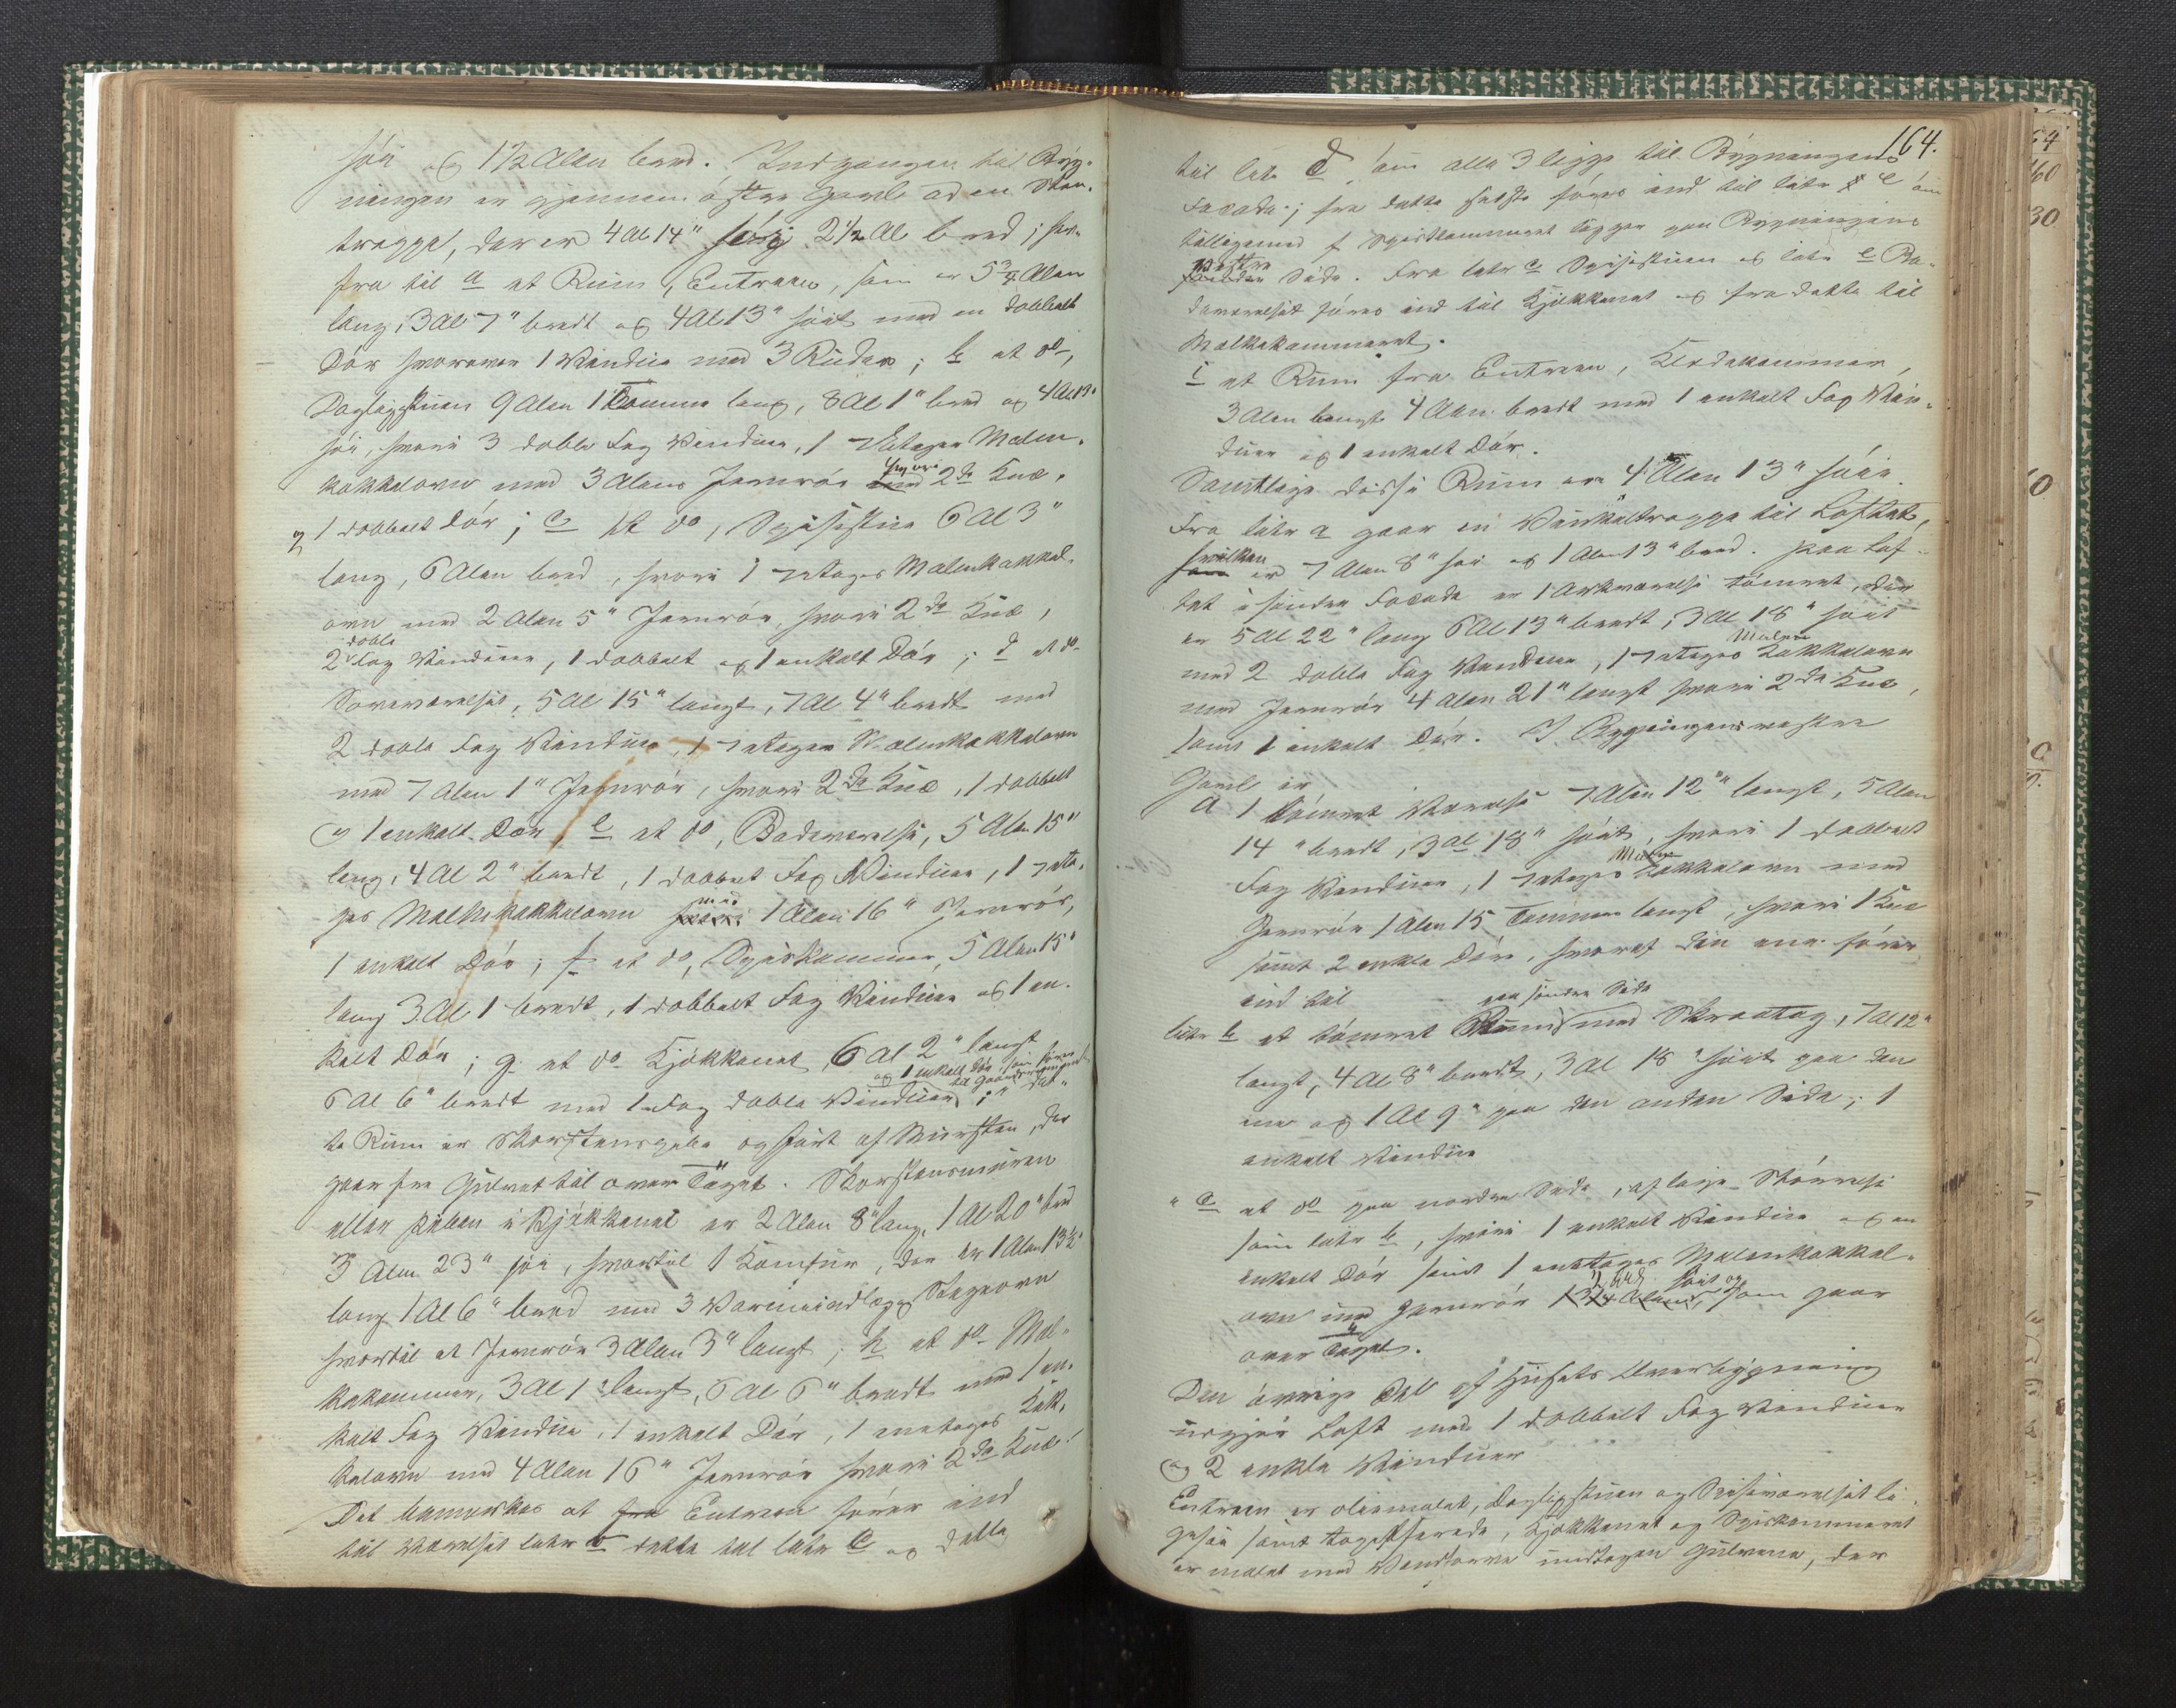 høi og 1½ Alen bred. Indgangen til Byg-
ningen er gjennem østre Gavl ad en Sten-
trappe, der er 4 Al 14" høi og 2½ Al bred; her-
fra til a et Rum, Entreen, som er 5¾ Alen
lang, 3 Al 7" bredt og 4 Al 13" høit med en dobbelt
Dør hvorover 1 Vindue med 3 Ruder; b et do,
Dagligstuen 9 Alen 1 Tomme lang, 8 Al 1" bred og 4 Al 19"
høi, hvori 3 doble Fag Vinduer, 1 7 Etages Malm-
kakkelovn med 3 Alens Jernrør hvori 2de Knæ,
1 dobbelt Dør; c et do, Spisestue 6 Al 3"
lang, 6 Alen bred, hvori 1 7 etages Malmkakkel-
ovn med 2 Alen 5" Jernrør, hvori 2de Knæ,
doble
2 Fag Vinduer, 1 dobbelt og 1 enkelt Dør; d et do
Soveværelset, 5 Al 15" langt, 7 Al 4" bredt med
2 doble Fag Vinduer, 1 7 etages Malmkakkelovn
med 7 Alen 1" Jernrør, hvori 2de Knæ, 1 dobbelt
og 1 enkelt Dør, e et do, Badeværelse, 5 Alen 15"
lang, 4 Al 2" bredt, 1 dobbelt Fag Vinduer, 1 7 eta-
ges Malmkakkelovn med 1 Alen 16" Jernrør,
1 enkelt Dør; f et do, Spiskammer, 5 Alen 15"
lang 3 Al 1 bredt, 1 dobbelt Fag Vinduer og 1 en-
kelt Dør; g. et do Kjøkkenet, 6 Al 2" langt
og 1 enkelt Dør, som fører
til
6 Al 6" bredt med 1 Fag doble Vinduer; i det-
te Rum er Skorstenspibe opført af Mursten, der
gaar fra Gulvet til over Taget. Skorstensmuren
eller Piben i Kjøkkenet er 2 Alen 8" lang, 1 Al 20" bred
3 Alen 23" høi, hvortil 1 Komfur, der er 1 Alen 13½"
lang 1 Al 6" bred med 3 Varmeindlæg Stegeovn
hvortil et Jernrør 3 Alen 3" langt; h et do Mel-
kekammer, 3 Al 1" langt, 6 Al 6" bredt med 1 en-
kelt Fag Vindue, 1 enkelt Dør, 1 enetages Kak-
kelovn med 4 Alen 16" Jernrør hvori 2de Knæ!
Det bemærkes at fra Entreen fører ind
til Værelset litr b dette til litr c og dette
164.
til litr d, som alle 3 ligge til Bygningens
Facade; fra dette sidste føres ind til litr e som
tilligemed f Spiskammeret ligger paa Bygningens
vestre
Side. Fra litr c Spisestuen og litr e Ba-
deværelset føres ind til Kjøkkenet og fra dette til
Melkekammeret.
i et Rum fra Entreen, Klædekammer,
3 Alen langt 4 Alen bredt med 1 enkelt Fag Vin-
duer og 1 enkelt Dør.
Samtlige disse Rum ere 4 Alen 13" høie.
Fra litr a gaar en Vinkeltrappe til Loftet,
hvilken
er 7 Alen 8" høi og 1 Alen 13" bred. Paa Lof-
tet i søndre Facade er 1 Arkværelse tømret, der
er 5 Al 22" lang 6 Al 13" bredt, 3 Al 18" høit
Malm
med 2 doble Fag Vinduer, 1 7 etages Kakkelovn
med Jernrør 4 Alen 21" langt hvori 2de Knæ,
samt 1 enkelt Dør. I Bygningens vestre
Gavl er
a 1 tømret Værelse 7 Alen 12" langt, 5 Alen
14" bredt, 3 Al 18" høit, hvori 1 dobbelt
Malm
Fag Vinduer, 1 7 etages Kakkelovn med
Jernrør 1 Alen 15 Tommer langt, hvori 1 Knæ
samt 2 enkle Døre, hvoraf den ene fører
ind til
paa søndre Side
litr b et tømret Rum med Skraatag, 7 Al 12"
langt, 4 Al 8" bredt, 3 Al 18" høit paa den
ene og 1 Al 9" paa den anden Side; 1
enkelt Vindue
" c et do paa nordre Side, af lige Størrelse
som litr b, hvori 1 enkelt Vindue og en
enkelt Dør samt 1 enetages Malmkakkel-
høit og
ovn med Jernrør som gaar
over Taget.
Den øvrige Del af Husets Overbygning
udgjør Loft med 1 dobbelt Fag Vinduer
og 2 enkle Vinduer
Entreen er oliemalet, Dagligstuen og Spiseværelset li-
gesaa samt tapetserede, Kjøkkenet og Spiskammeret
er malet med Vandfarve undtagen Gulvene, der